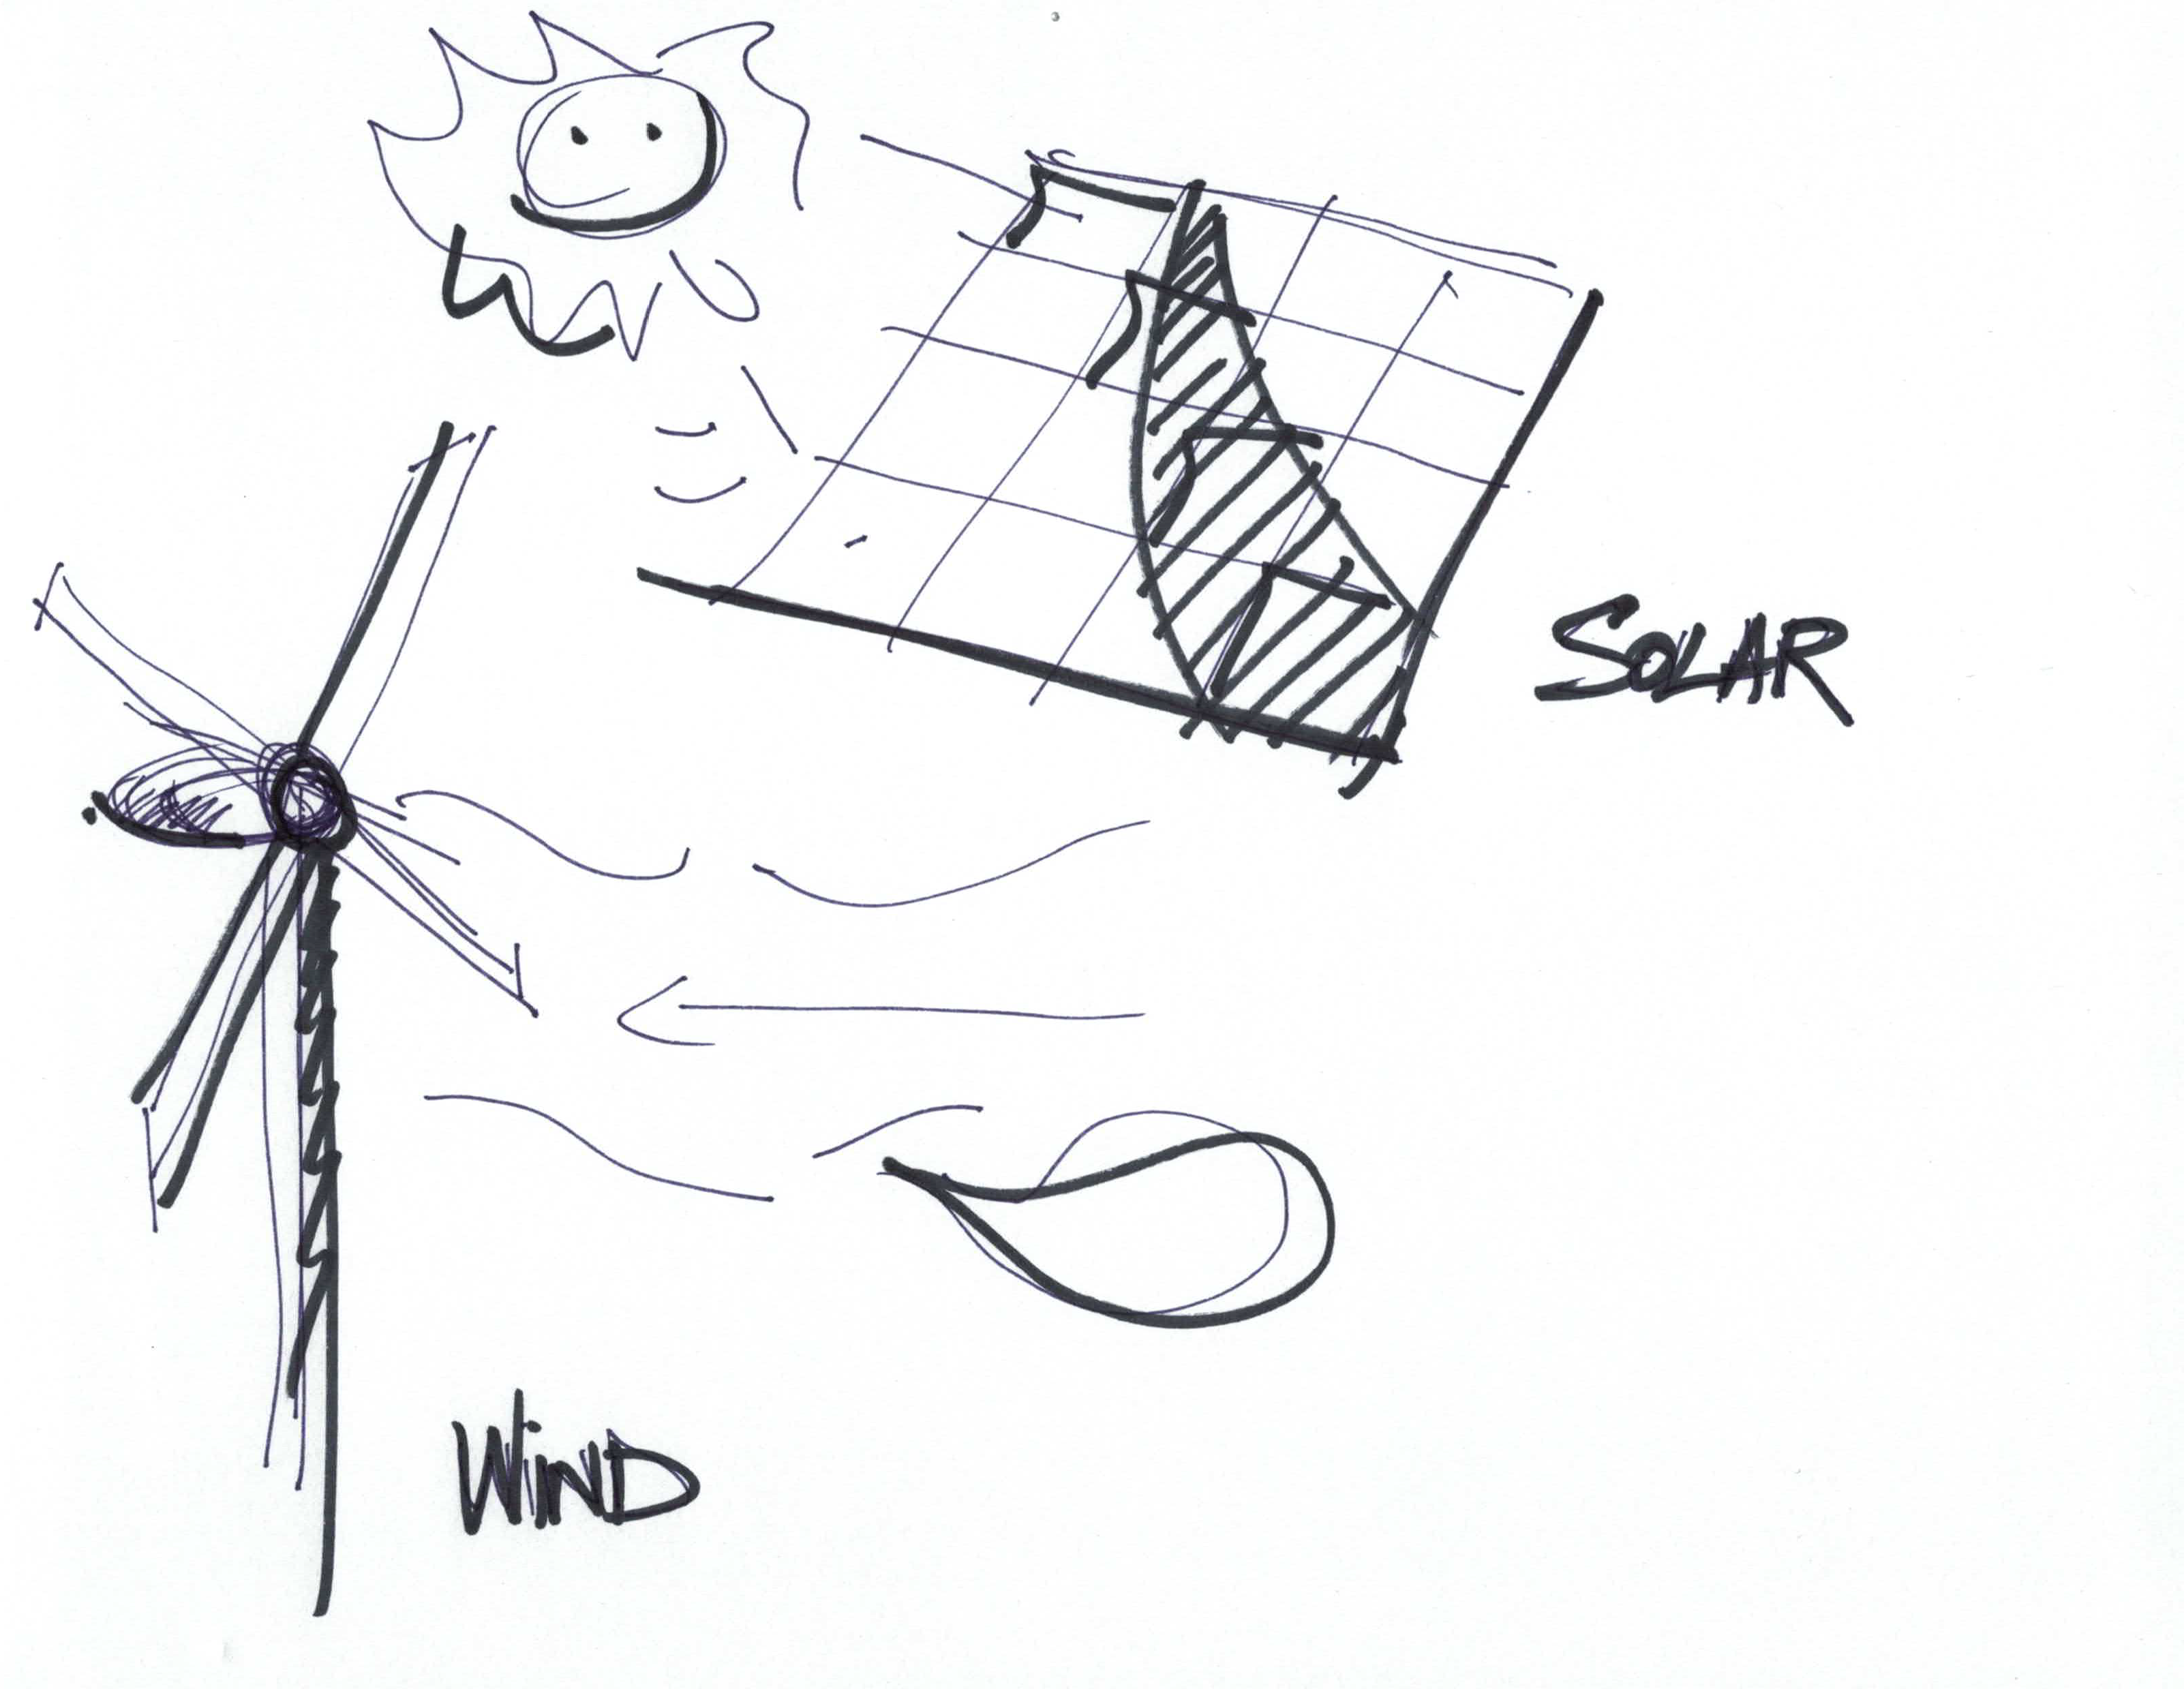 SOLAR
WiND